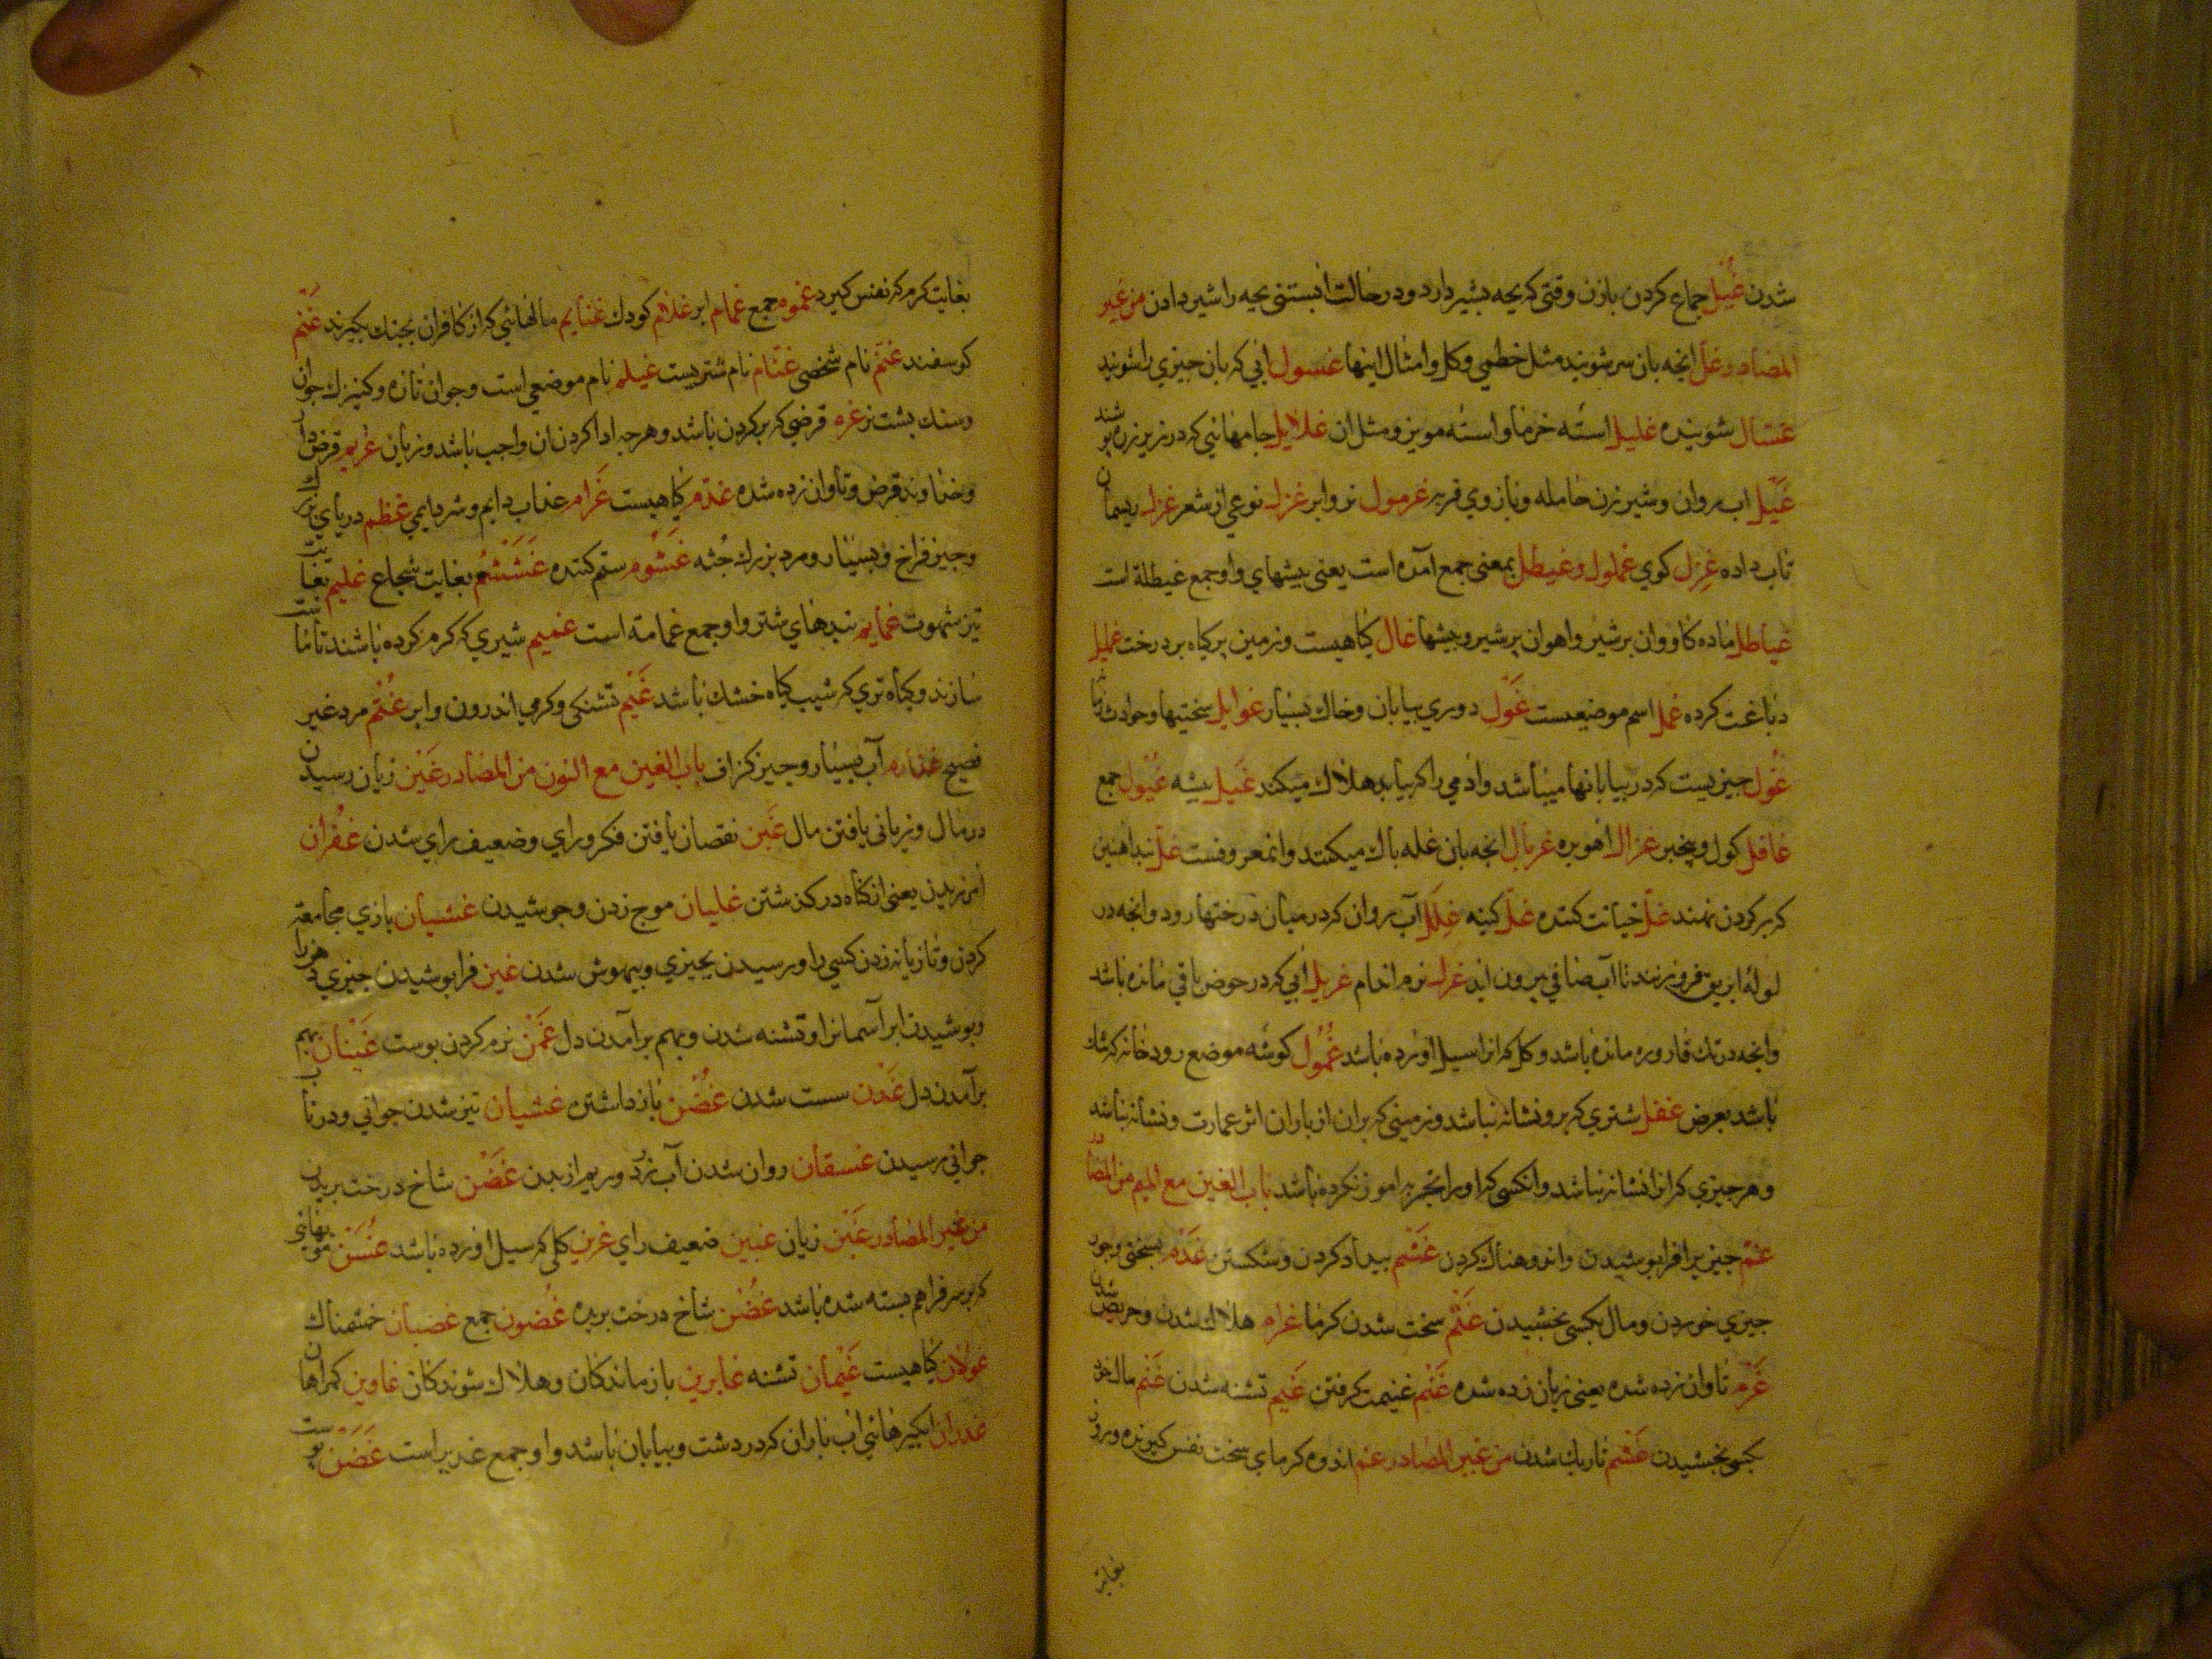 شدن غیل جماع کردن بازن وقتی که بچه بشیر دارد ودر حالت ابستنی بچه را شیر دادن من غیر
المصادر غسل انچه بان سر شویند مثل خطمی وکل وامثال اینها غسول ابی که بان چیزی را شویند
غسال شوینده غلیل استه خرما واسته مویز ومثل ان غلایل جامهائی که در زیر زره پوشند
غیل اب روان وشیر زن حامله وبازوی فربه غرمول نر وابر غزل نوعی از شعر غزل ریسمان
تاب داده غزل کوی غملول وغیطل بمعنی جمع آمده است یعنی بیشهای واو جمع غیطلة است
غیاطل ماده کاووان پر شیر واهوان پر شیر وبیشها غال کیاهیست وزمین پر کیاه پر درخت غلیل
دباغت کرده غمل اسم موضعیست غول دوری بیابان وخاك بسیار غوایل سختیها وحوادث
غول چیزیست که در بیابانها میباشد وادمی را که بیابد هلاك میکند غیل بیشه غیول جمع
غافل کول وبیخبر غزال اهوبره غربال انچه بان غله پاك میکنند وانمعروفست غل بند اهنین
که بر کردن نهند غل خیانت کننده غل کینه غلل آب روان که در میان درختها رود وانچه در
لوله ابریق فرو برند تا آب صافی بیرون اید غزل نرم اندام غریل ابی که در حوض باقی مانده باشد
وانچه در تك قاروره مانده باشد وکل که انرا سیل اورده باشد غملول کوشه موضع رودخانه که تنك
باشد بعرض غفل شتری که برو نشانه نباشد وزمینی که بران از باران اثر عمارت ونشانه نباشد
وهر چیزی که انرا نشانه نباشد وانکسی که اورا تجربه اموز نکرده باشد باب الغین مع المیم من المصادر
غم چیزیرا فرا پوشیدن واندوهناك کردن غشم بیداد کردن وشکستن غذم بسختی
چیزی خوردن ومال بکسی بخشیدن غتم سخت شدن کرما غرام هلاك شدن وحریص شدن
غرم تاوان زده شده یعنی زیان زده شده غنم غنیمت کرفتن غیم تشنه شدن غثم مال خود
بکسی بخشیدن غشم تاریك شدن من غیر المصادر غم اندوه کرمای سخت نفس کیرنده وروز
بغایت
بغایت کرم که نفس کیرد غموم جمع غمام ابر غلام کودك غنایم مالهائی که از کافران بجنك بکیرند غنم
کوسفند غنم نام شخصی غنام نام شتریست غیلم نام موضعی است وجوان تازه وکنیزك جوان
وسنك پشت نر غرم قرضی که بر کردن باشد وهر چه ادا کردن ان واجب باشد وزیان غریم قرض دار
وخداوند قرض وتاوان زده شده غذم کیاهیست غرام عذاب دایم وشر دایمی غطم دریای بزرك
وچیز فراخ وبسیار ومرد بزرك جثه غشوم ستم کننده غشمشم بغایت شجاع غلیم بغایت
تیز شهوت غمایم بندهای شتر واو جمع غمامة است غمیم شیری که کرم کرده باشند تا ماست
سازند وکیاه تری که شیب کیاه خشك باشد غیم تشنکی وکرمی اندرون وابر غتم مرد غیر
فصیح غذارم آب بسیار وچیز کزاف باب الغین مع النون من المصادر غبن زیان رسیدن
در مال وزیانی یافتن مال غبن نقصان یافتن فکر ورای وضعیف رای شدن غفران
امرزیدن یعنی از کناه در کذشتن غلیان موج زدن وجوشیدن غشیان بازی مجامعة
کردن وتازیانه زدن کسی را ورسیدن بچیزی وبیهوش شدن غین فرا پوشیدن چیزی
وپوشیدن ابر آسمانرا وتشنه شدن وبهم برآمدن دل غمن نرم کردن پوست غینان بهم
برآمدن دل غدن سست شدن غضن باز داشتن غشیان تیز شدن جوانی ودر تا
جوانی رسیدن غسقان روان شدن آب زرد وریم از بدن غضن شاخ درخت بریدن
من غیر المصادر غبن زیان غبین ضعیف رای غرین کلی که سیل اورده باشد غسن مویهائی
که بر سر فراهم بسته شده باشد غصن شاخ درخت بریده غصون جمع غضبان خشمناك
غولان کیاهیست غیمان تشنه غابرین باز ماندکان وهلاك شوندکان غاوین کمراهان
غدران ابکیرهائی اب باران که در دشت وبیابان باشد واو جمع غدیر است غضن پوست